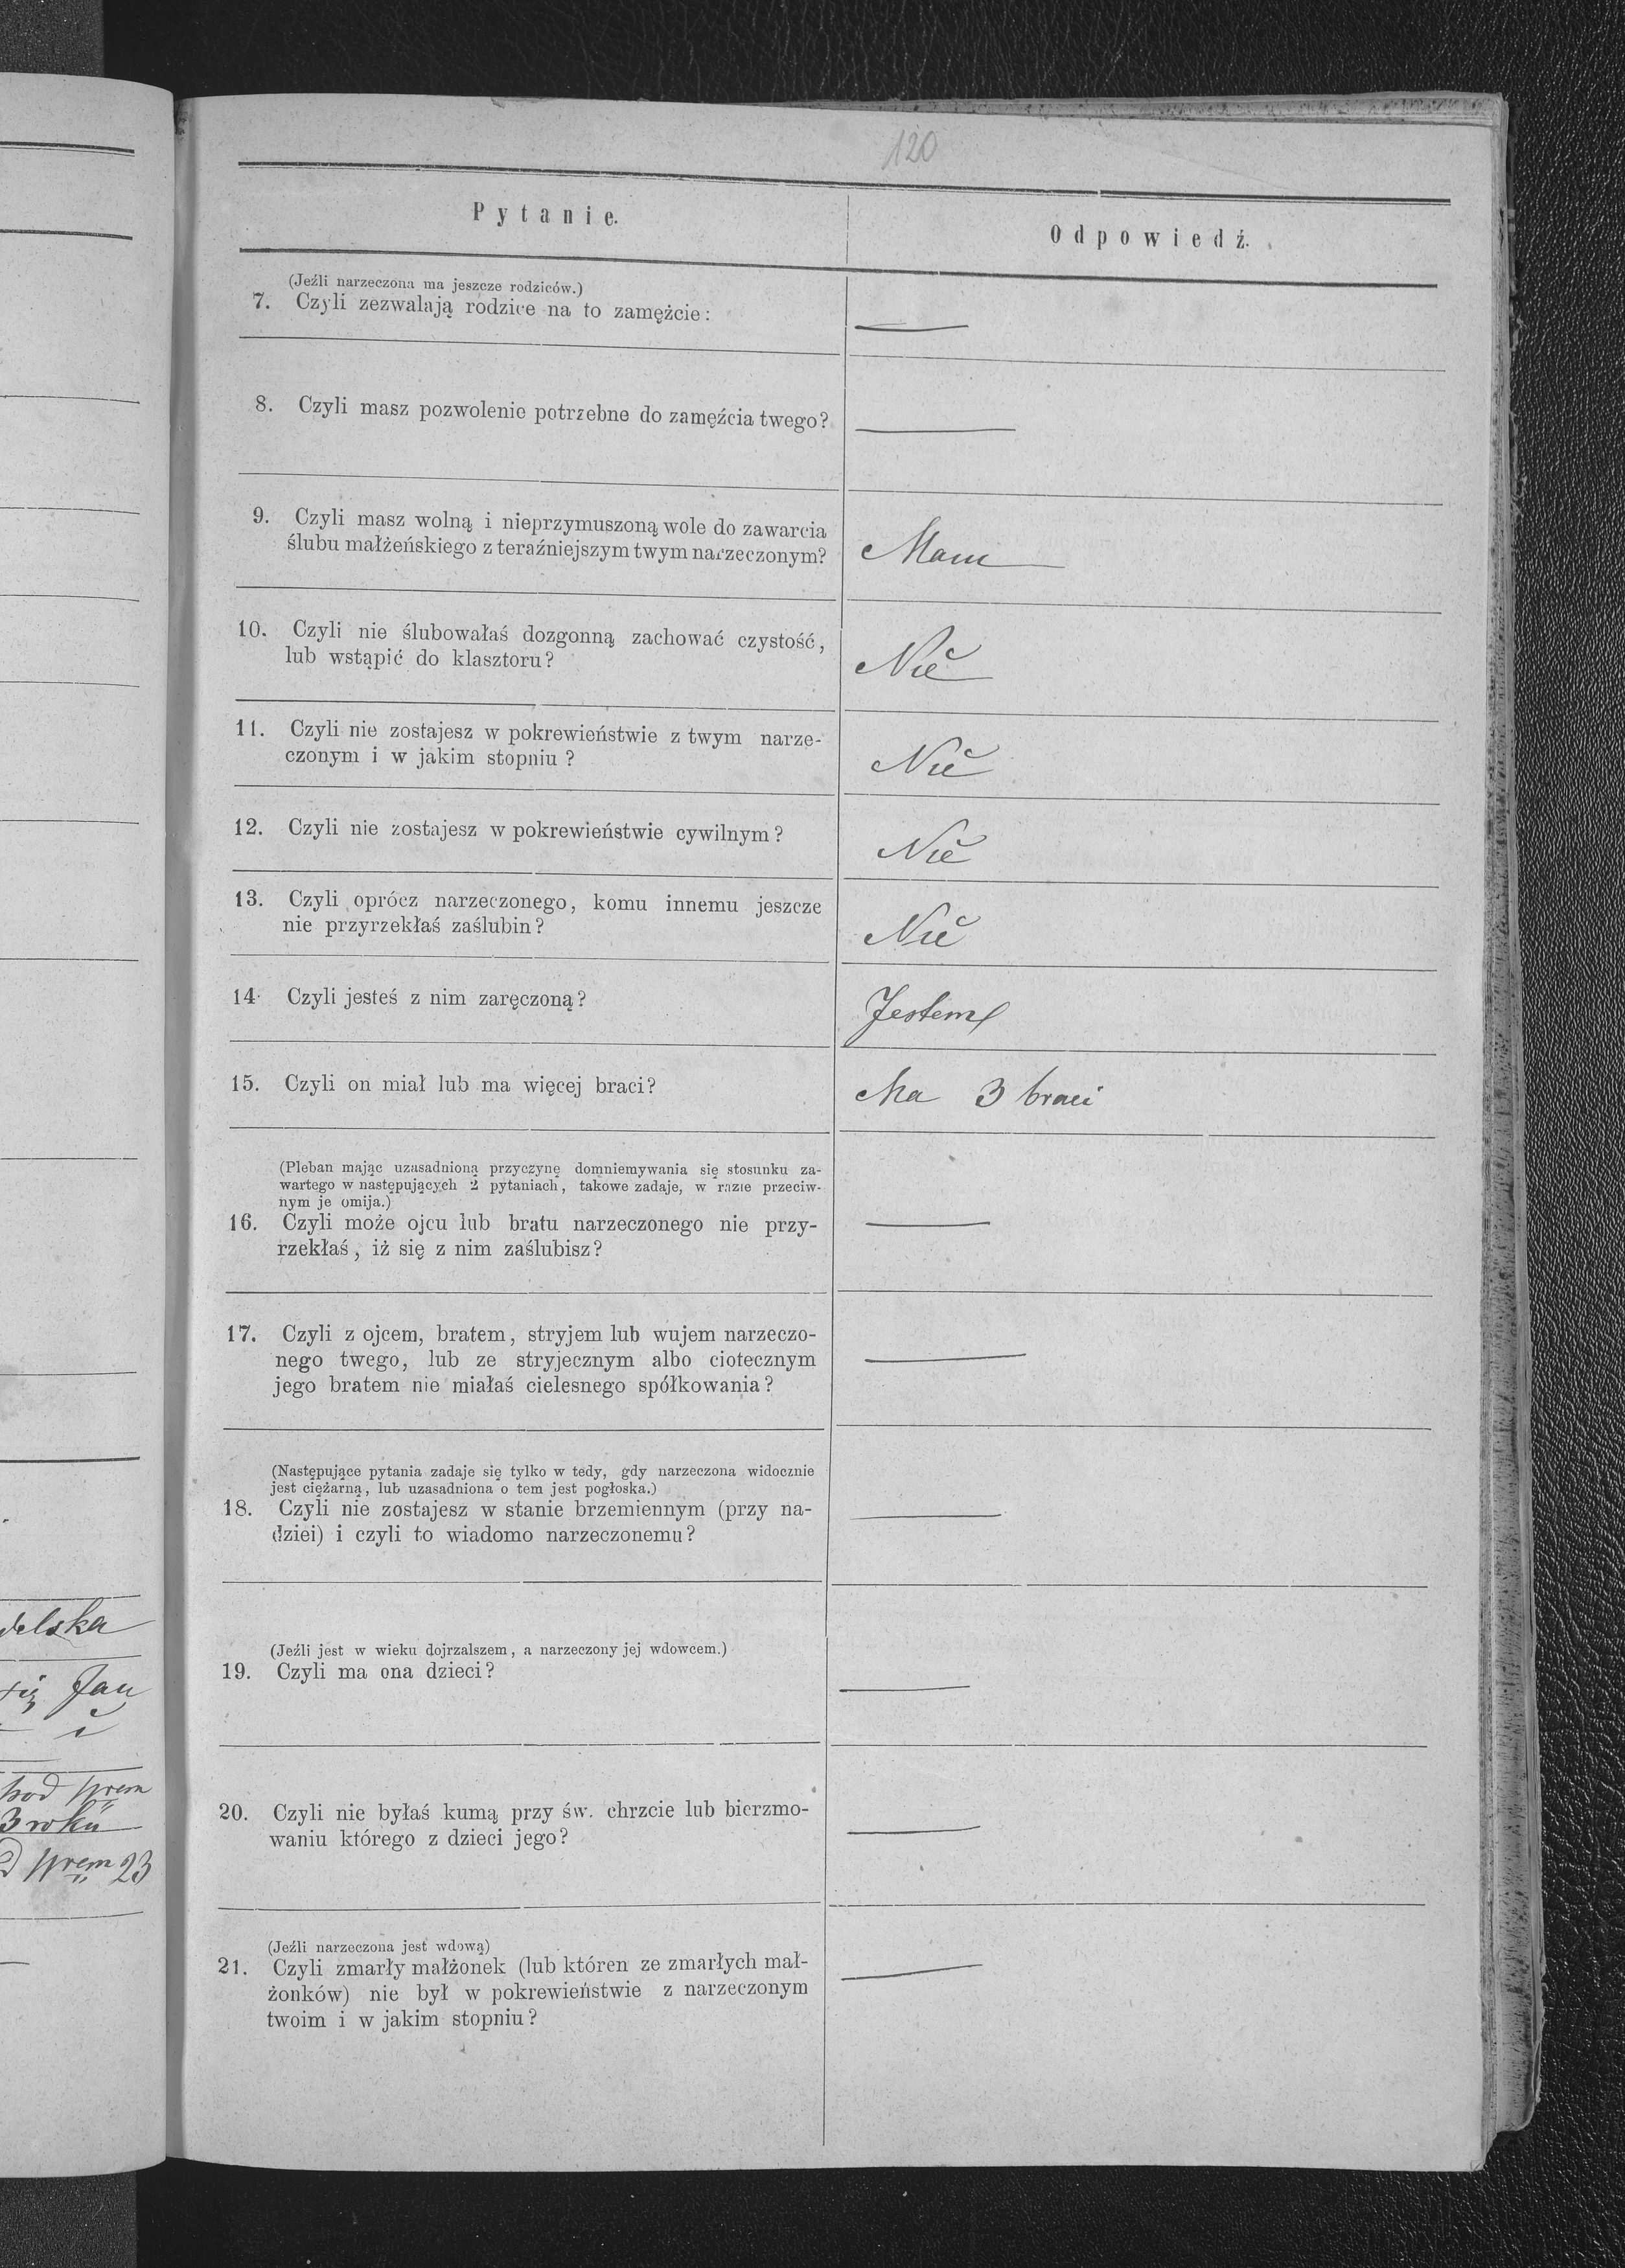 120
Pytanie.
Odpowiedź.
(Jeźli narzeczona ma jeszcze rodziców.)
7. Czyli zezwalają rodzice na to zamężcie:
8. Czyli masz pozwolenie potrzebne do zamęźcia twego?
9. Czyli masz wolną i nieprzymuszoną wole do zawarcia
ślubu małżeńskiego z teraźniejszym twym narzeczonym?
Mam
10. Czyli nie ślubowałaś dozgonną zachować czystość,
lub wstąpić do klasztoru?
Nie
11. Czyli nie zostajesz w pokrewieństwie z twym narze-
czonym i w jakim stopniu?
Nie
12. Czyli nie zostajesz w pokrewieństwie cywilnym?
Nie
13. Czyli oprócz narzeczonego, komu innemu jeszcze
nie przyrzekłaś zaślubin?
Nie
14. Czyli jesteś z nim zaręczoną?
Jestem
15. Czyli on miał lub ma więcej braci?
Ma 3 braci
(Pleban mając uzasadnioną przyczynę domniemywania się stosunku za-
wartego w następujących 2 pytaniach, takowe zadaje, w razie przeciw-
nym je omija.)
16. Czyli może ojcu lub bratu narzeczonego nie przy-
rzekłaś, iż się z nim zaślubisz?
17. Czyli z ojcem, bratem, stryjem lub wujem narzeczo-
nego twego, lub ze stryjecznym albo ciotecznym
jego bratem nie miałaś cielesnego spółkowania?
(Następujące pytania zadaje się tylko w tedy, gdy narzeczona widocznie
jest ciężarną, lub uzasadniona o tem jest pogłoska.)
18. Czyli nie zostajesz w stanie brzemiennym (przy na-
dziei) i czyli to wiadomo narzeczonemu?
(Jeźli jest w wieku dojrzalszem, a narzeczony jej wdowcem.)
19. Czyli ma ona dzieci?
20. Czyli nie byłaś kumą przy św. chrzcie lub bierzmo-
waniu którego z dzieci jego?
(Jeźli narzeczona jest wdową)
21. Czyli zmarły małżonek (lub któren ze zmarłych mał-
żonków) nie był w pokrewieństwie z narzeczonym
twoim i w jakim stopniu?
delska
się Jan
i
pod
3 roku
23